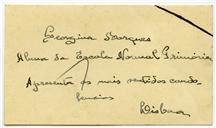 Georgina Marques
Aluna da Escola Normal Primária
Apresenta os mais sentidos condo-
lencias
Lisboa